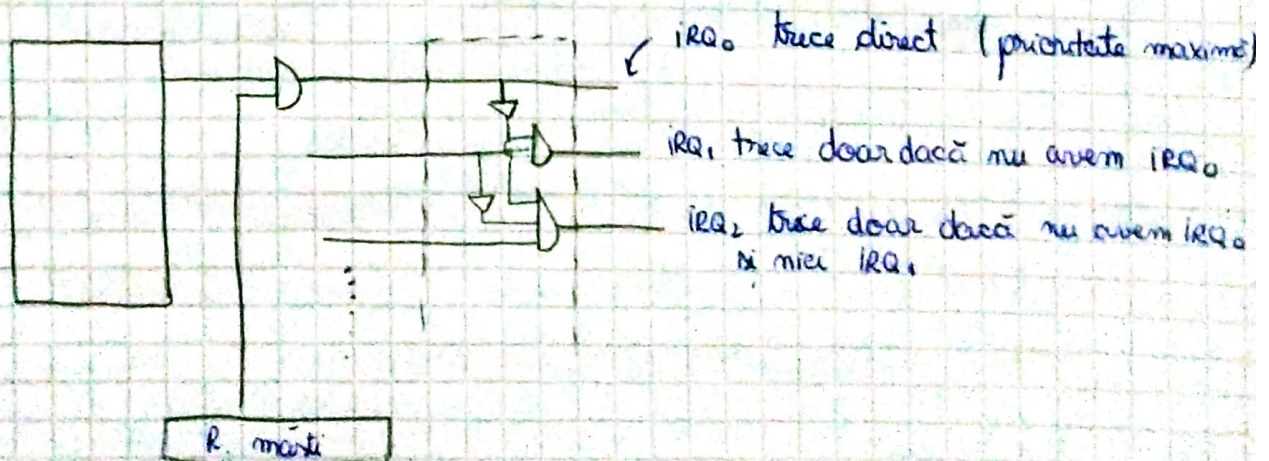 iRQ₀ trece direct (prioritate maximă)
iRQ₁ trece doar dacă nu avem iRQ₀
iRQ₂ trece doar dacă nu avem iRQ₀
și nici iRQ₁
R. măști